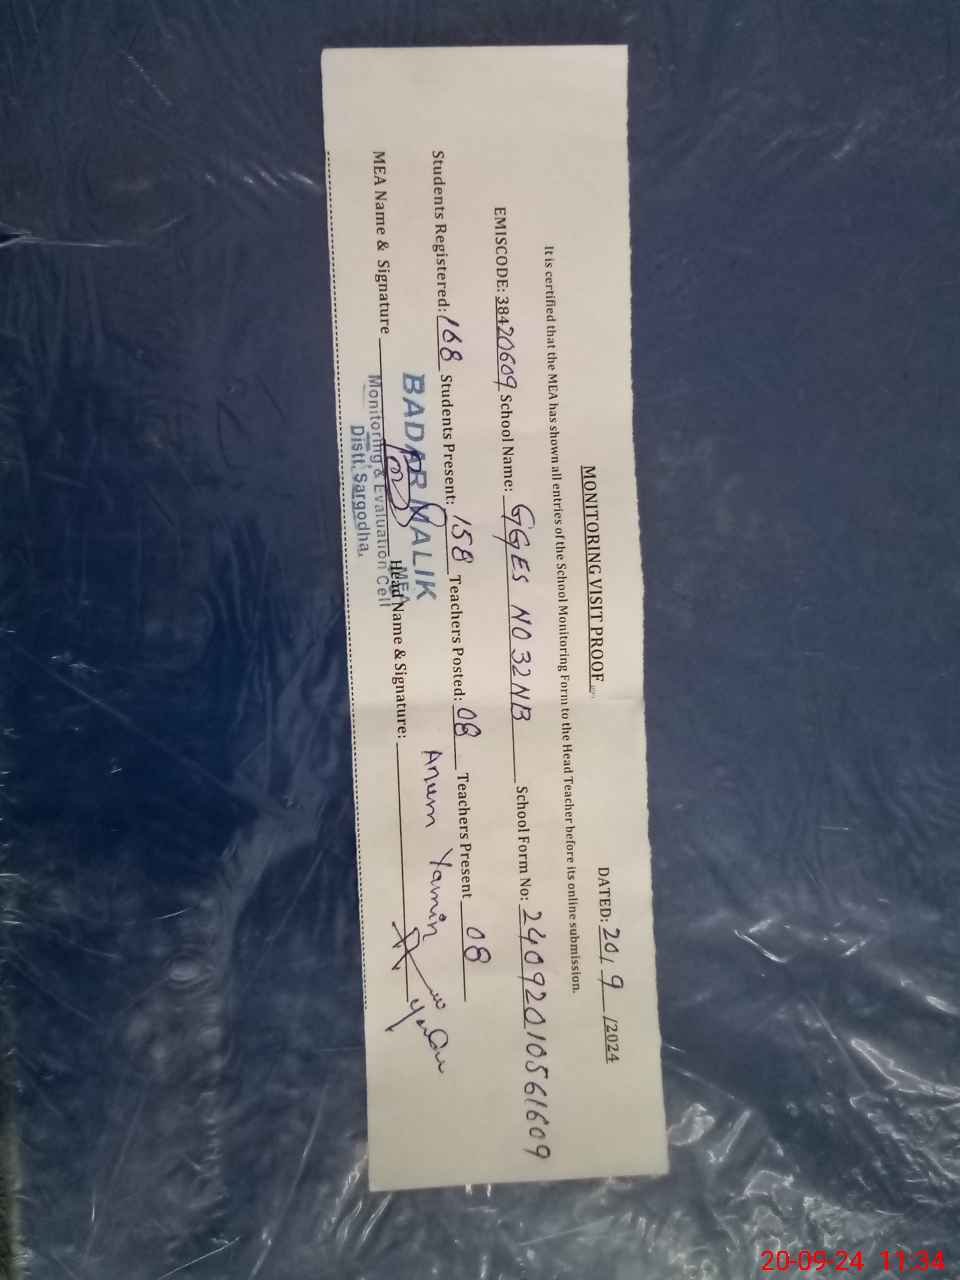 MONITORING VISIT PROOF
DATED: 20/9/2024
It is certified that the MEA has shown all entries of the School Monitoring Form to the Head Teacher before its online submission.
EMISCODE: 38420609 School Name: GGES NO 32NB School Form No: 2409201056 1609
Students Registered: 168 Students Present: 158 Teachers Posted: 08 Teachers Present 08
MEA Name & Signature Head Name & Signature: Anum Yamin
BADAR MALIK
MEA
Monitoring & Evaluation Cell
Distt. Sargodha.
20-09-24 11:34